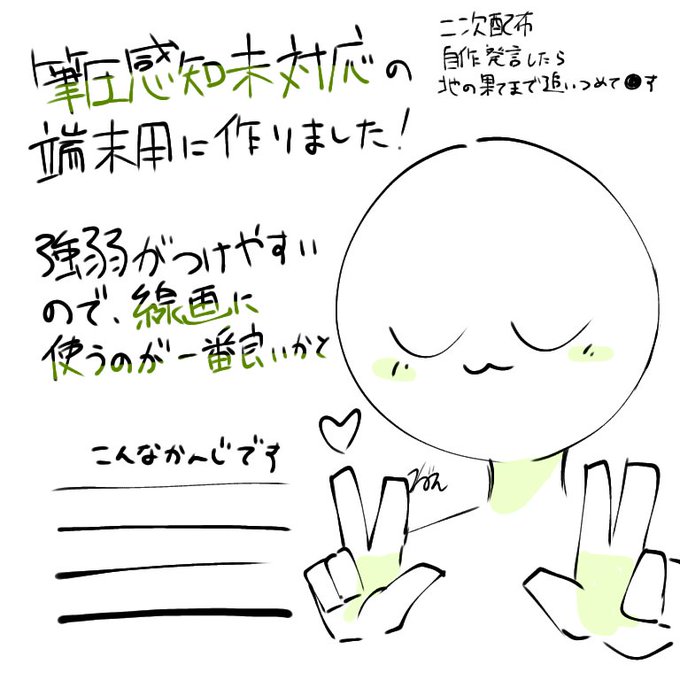 筆圧感知未対応の
端末用に作りました!
二次配布
自作発言したら
地の果てまで追いつめて●す
強弱がつけやすい
ので、線画に
使うのが一番良いかと
こんなかんじです